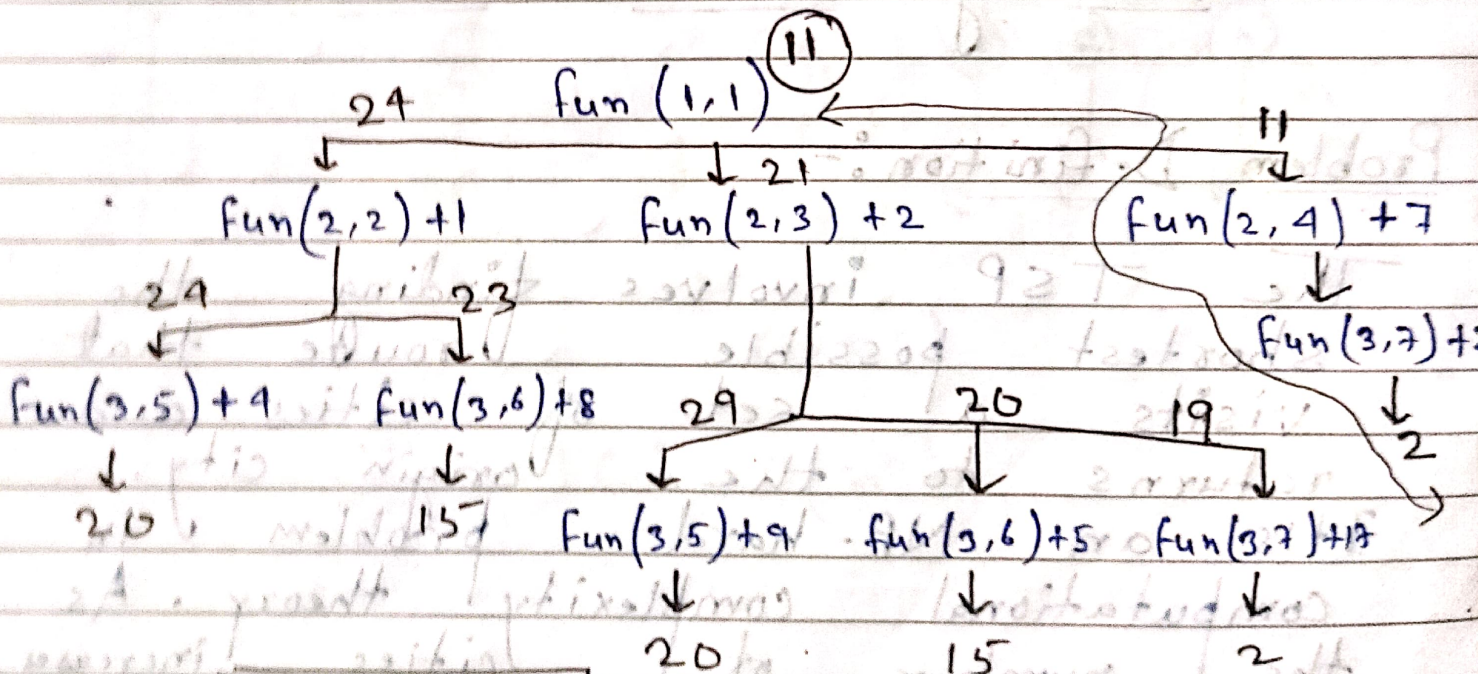 11
24 fun (1,1) 11
21
fun(2,2) +1 fun(2,3) +2 fun(2,4) +7
24 23
fun(3,7)+
fun(3,5)+4 fun(3,6)+8 29 20 19
2
20 15 fun(3,5)+9 fun(3,6)+5 fun(3,7)+17
20 15 2